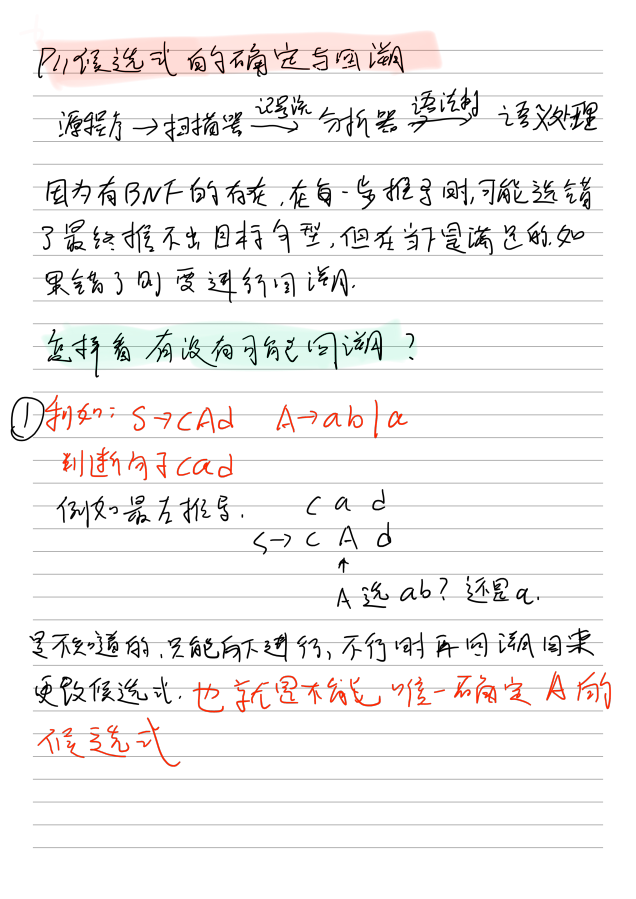 P11候选式的确定与回溯
源程序→扫描器 记号流→ 分析器 语法树→ 语义处理
因为有BNF的存在,在每一步推导时,可能选错
了最终推不出目标句型,但在当下是满足的.如
果错了则要进行回溯.
怎样看有没有可能回溯?
① 例如: S→cAd A→ab|a
判断句子cad
例如最左推导. c a d
S→ c A d
↑
A 选 ab? 还是a.
是不知道的,只能向下进行,不行时再回溯回来
更改候选式.也就是不能唯一确定A的
候选式